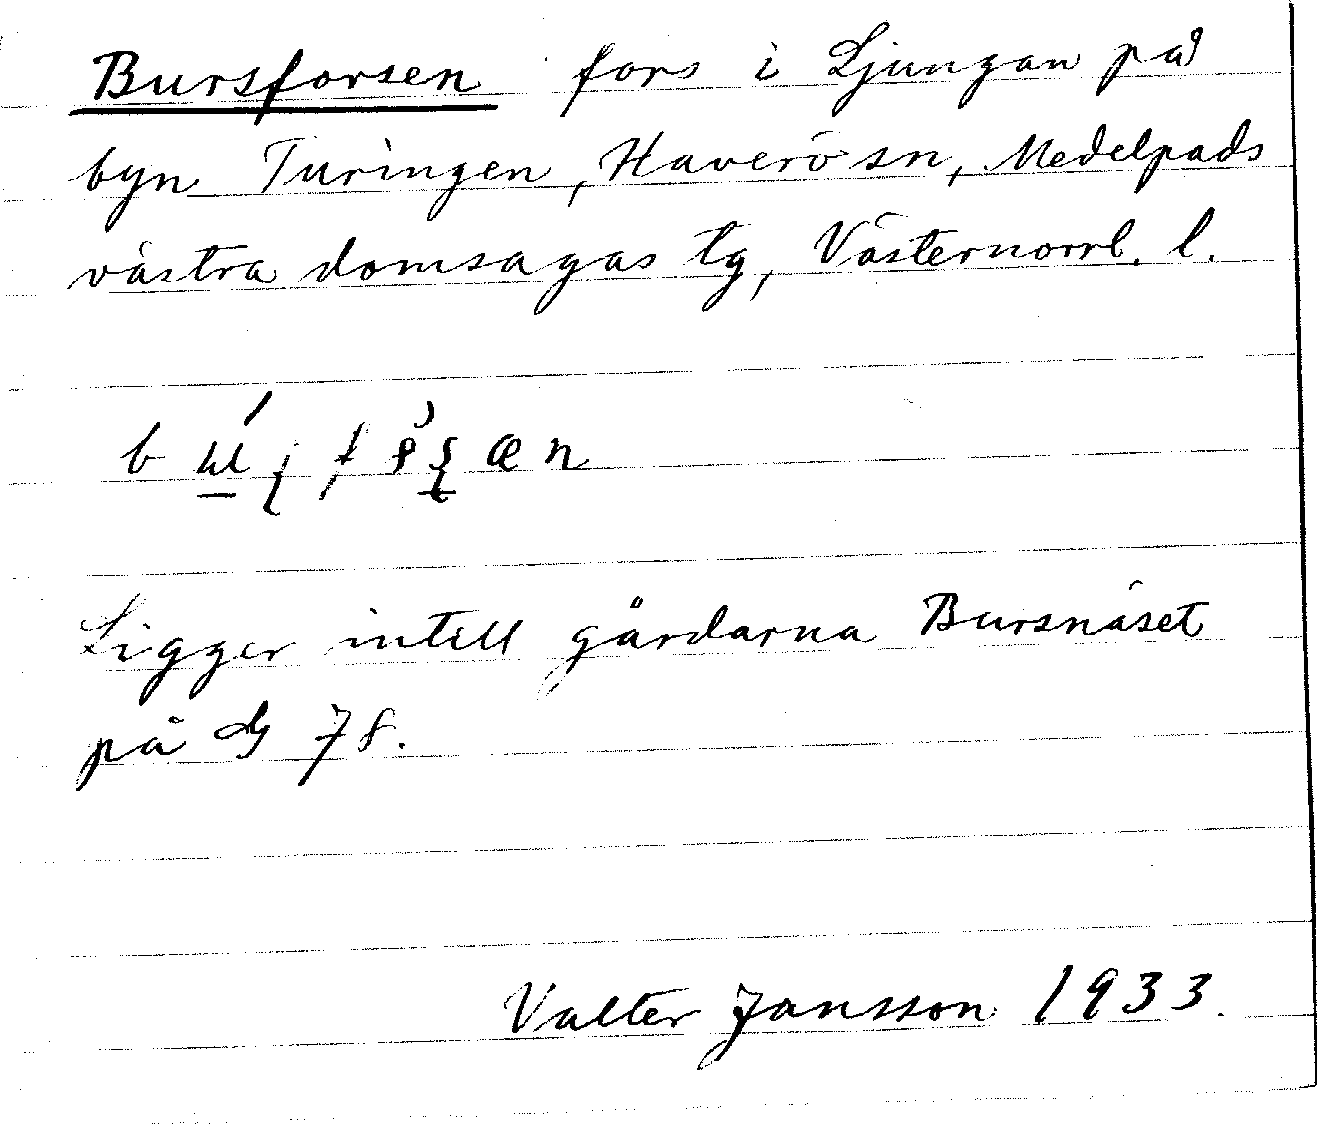 Bursforsen fors i Ljungan på
byn Turingen, Haverö sn, Medelpads
västra domsagas tg, Västernorrl. l.
Ligger intill gårdarna Bursnäset
på 78.
Valter Jansson 1933.